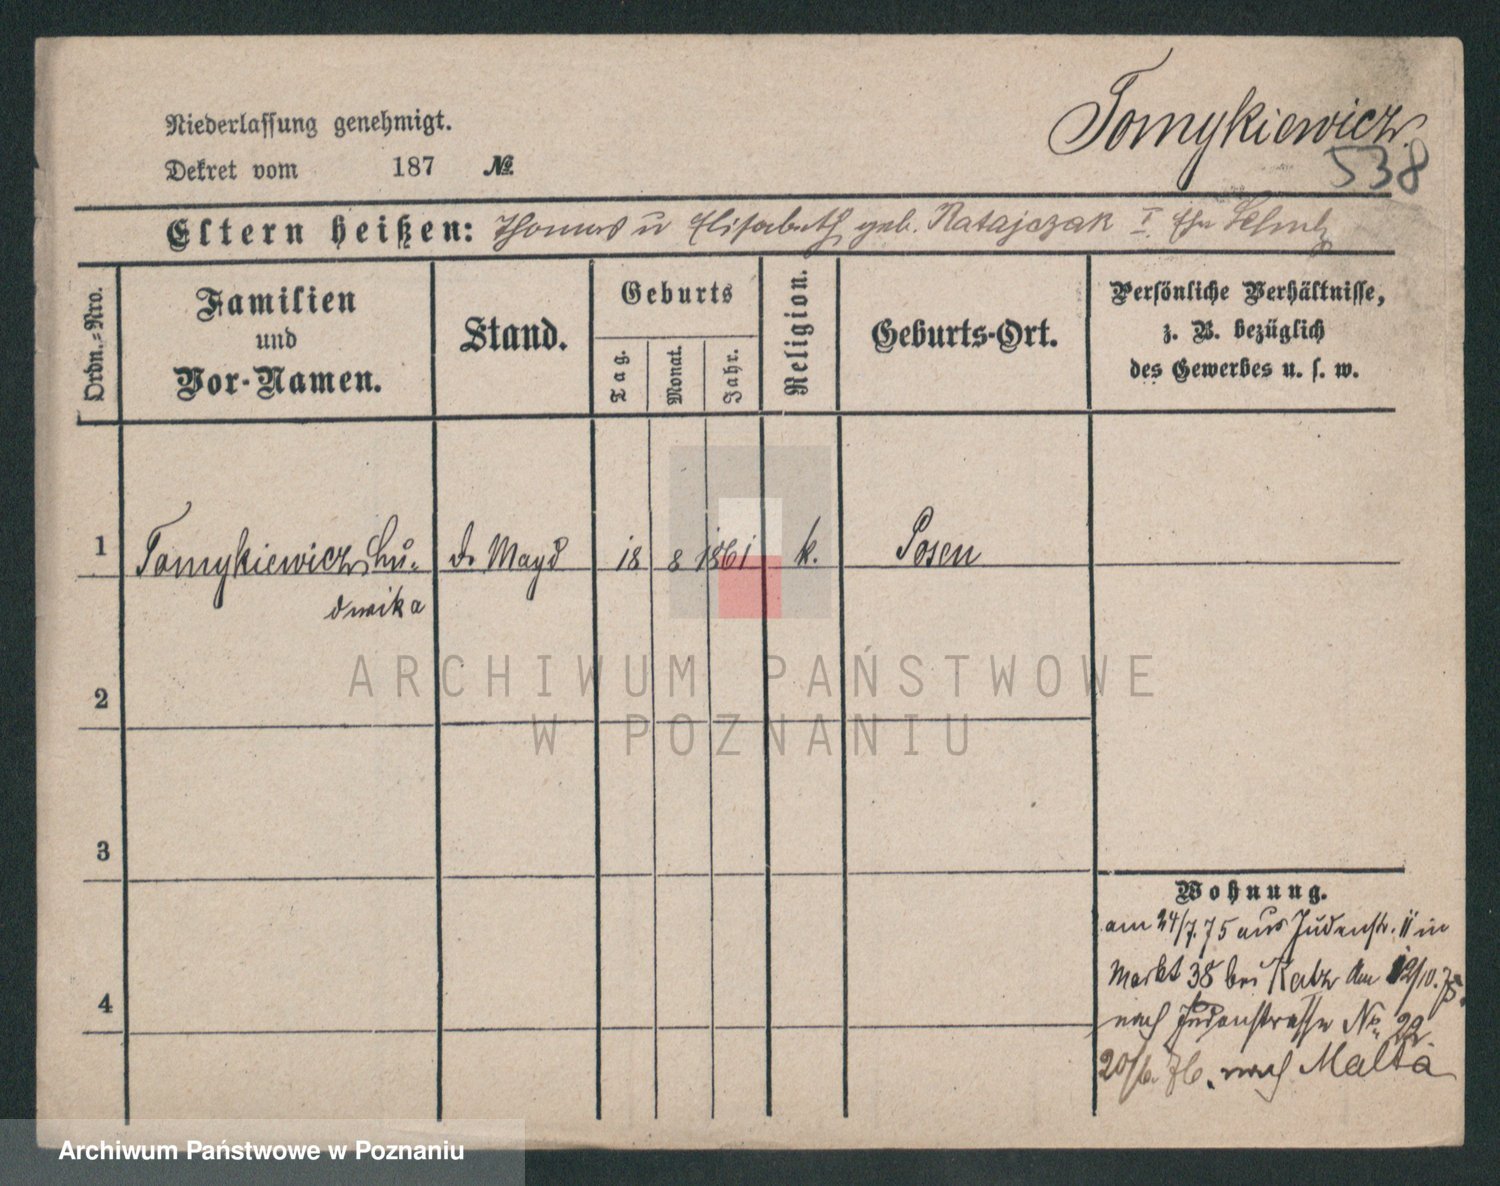 Tomykiewicz.
538
Niederlassung genehmigt.
Dekret vom 187 No.
Eltern heißen: Thomas u Elisabeth geb. Ratajczak I. Ehe
Ordn.-Nro.
Familien
und
Vor-Namen.
Stand.
Geburts
Tag.
Monat.
Jahr.
Religion.
Geburts-Ort.
Persönliche Verhältnisse,
z. B. bezüglich
des Gewerbes u. s. w.
1 Tomykiewicz, Lu-
dwika
d. Magd 18 8 1861 k. Posen
2
3
4
ARCHIWUM PAŃSTWOWE
W POZNANIU
Wohnung.
am 24/7. 75 aus Judenstr. 11 in
Markt 38 bei Katz den 12/10. 75.
nach Judenstrasse No. 22.
20/6. 76. nach Malta
Archiwum Państwowe w Poznaniu